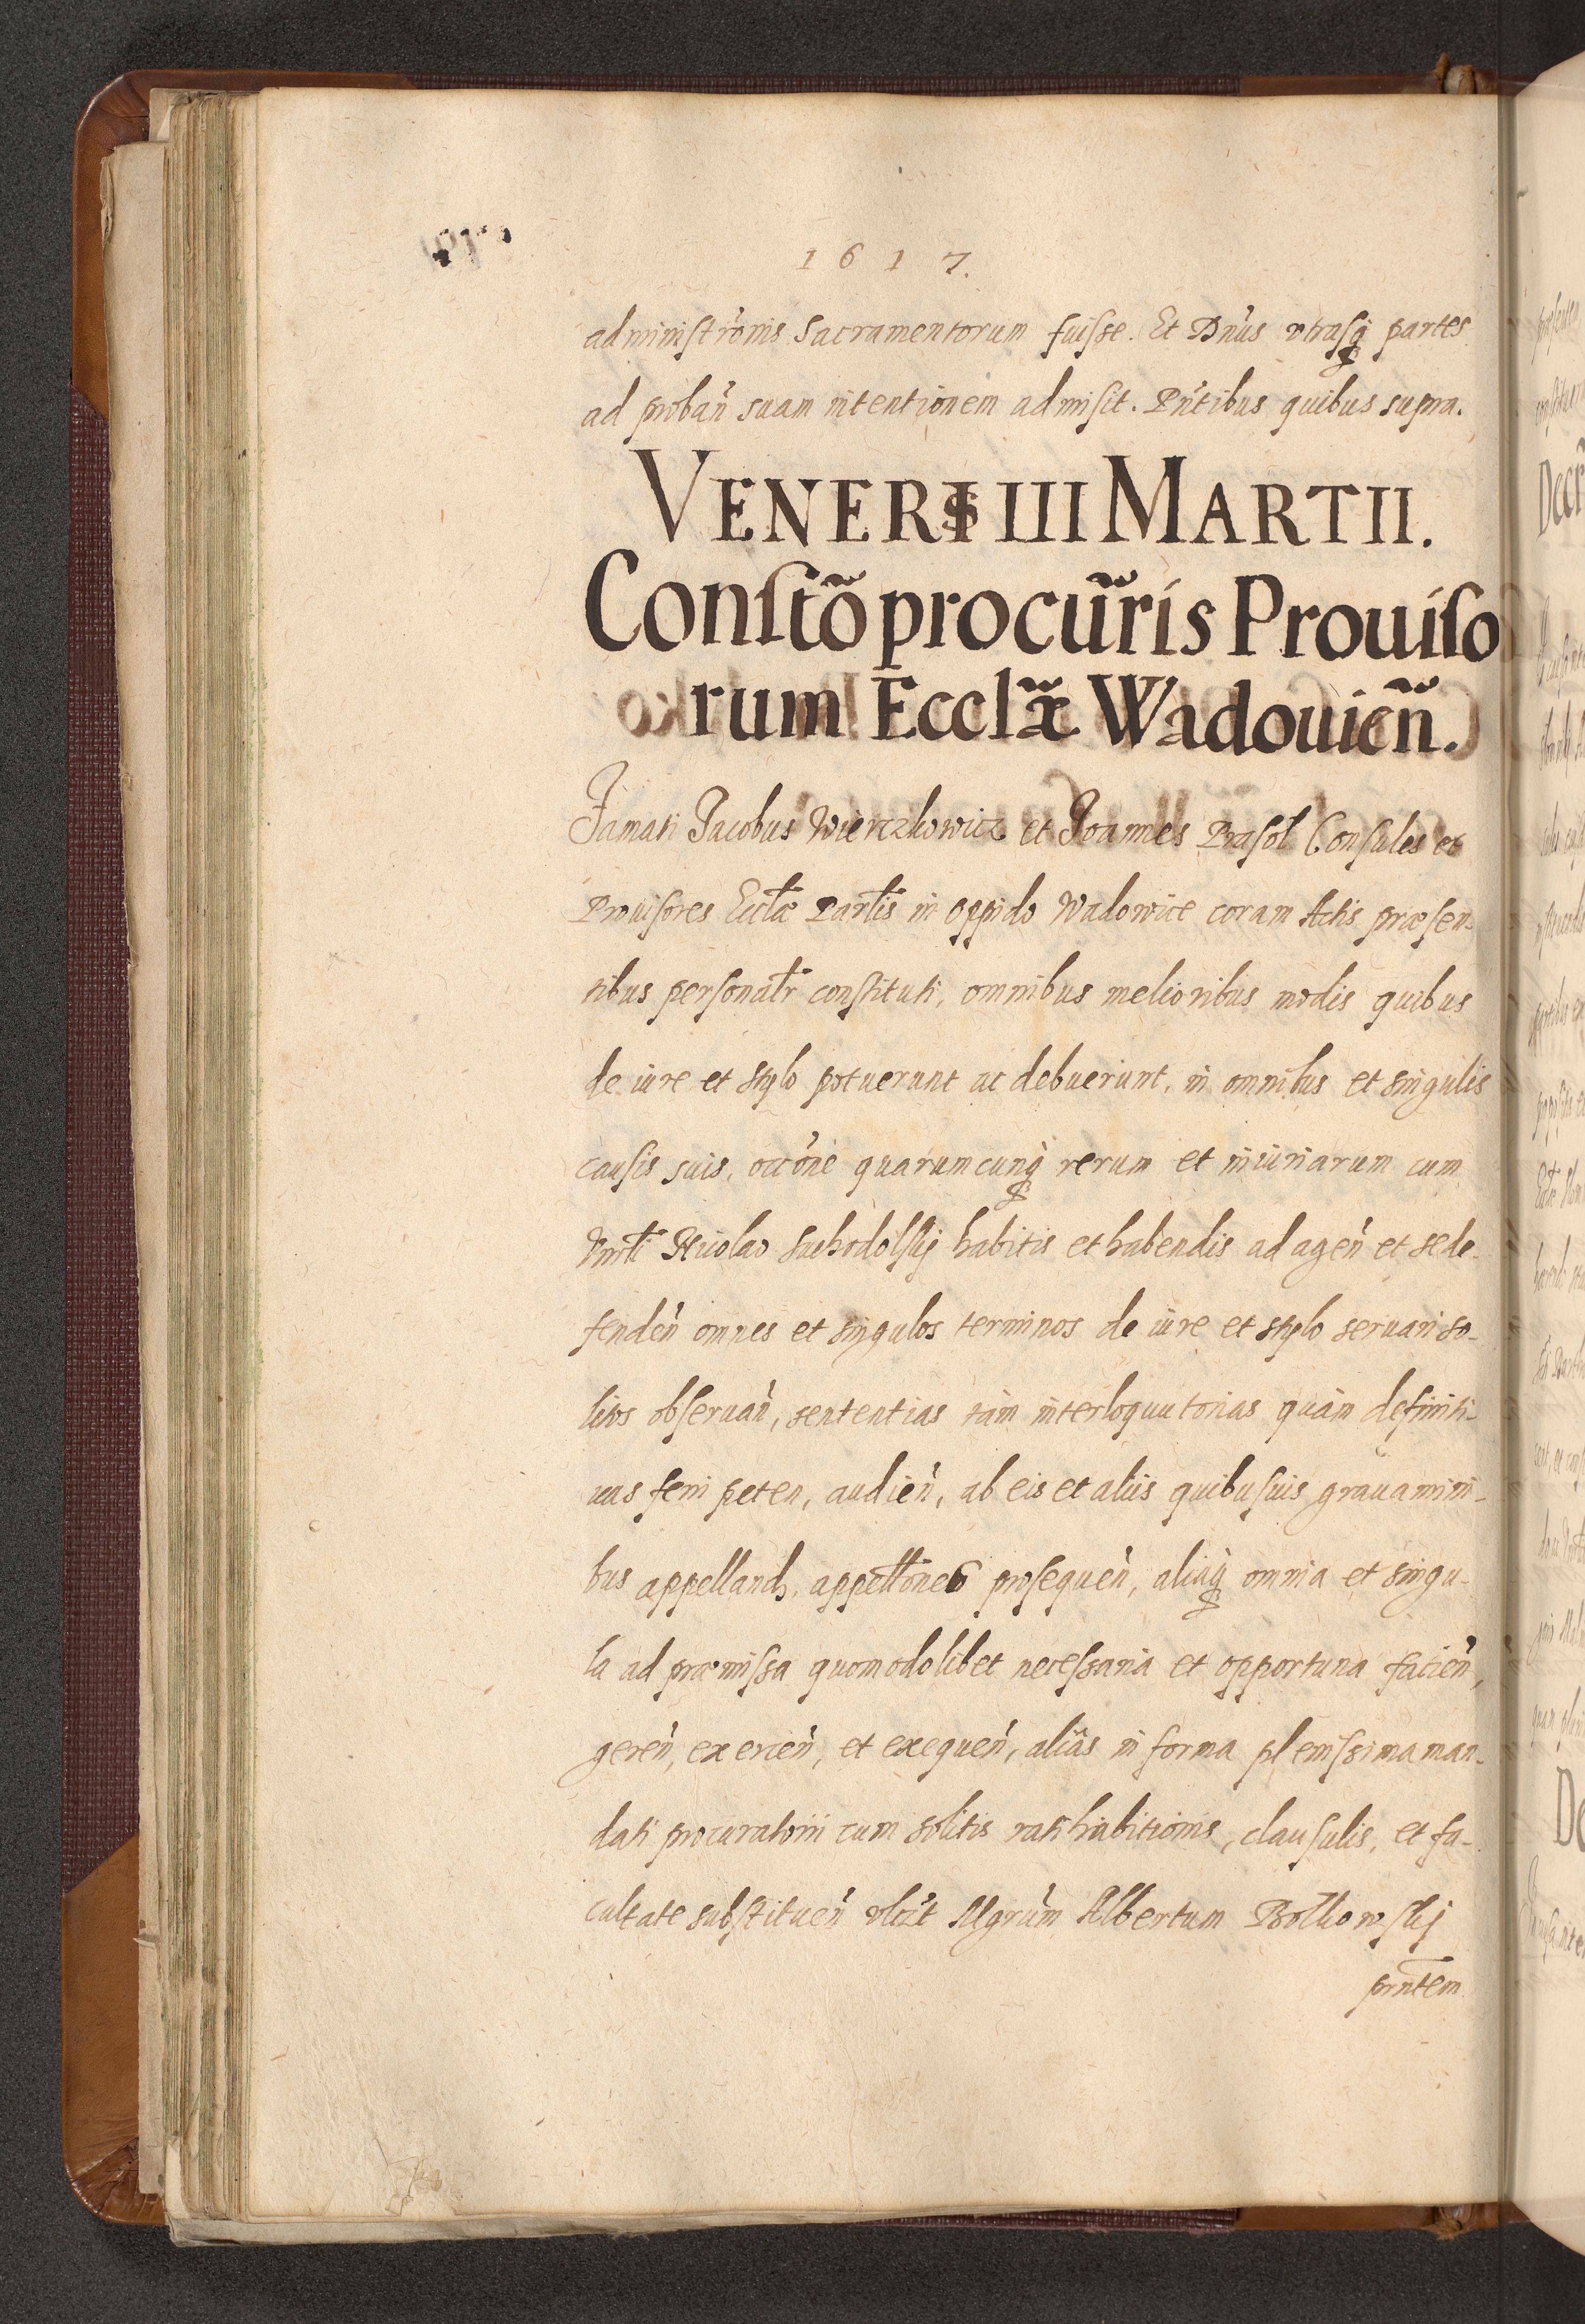 1617.
administrōnis Sacramentorum fuisse. Et Dn̄us vtrasq̨ partes
ad proban̄ suam intentionem admisit. Pn̄tibus quibus supra.
VENERIS III MARTII.
Constō procur̄is Prouiso
rum Ecclæ Wadouien̄.
Famati Jacobus Wierczkowicz et Joannes Prasol Consules et
Prouisores Ecclæ Parlis in oppido Wadowice coram Actis præsen-
tibus personalr constituti, omnibus melioribus modis quibus
de iure et stylo potuerunt ac debuerunt, in omnibus et singulis
causis suis, occōne quarumcunq̨ rerum et iniuriarum cum
Hicolao Suchodolskij habitis et habendis ad agen̄ et sede-
fenden̄ omnes et singulos terminos de iure et stylo seruari so-
litos obseruan̄, sententias tàm interloquutorias quàm definiti-
uas ferri peten, audien̄, ab eis et aliis quibusuis grauamini-
bus appelland, appellōnes prosequen̄, aliaq̨ omnia et singu-
la ad præmissa quomodolibet necessaria et opportuna facien̄,
geren̄, exercen̄, et exequen̄, aliâs in forma plenissima man-
dati procuratorii cum solitis ratihabitionis, clausulis, et fa-
cultate substituen̄ vlczt Mgrum̄ Albertum Borkowskij
prntem